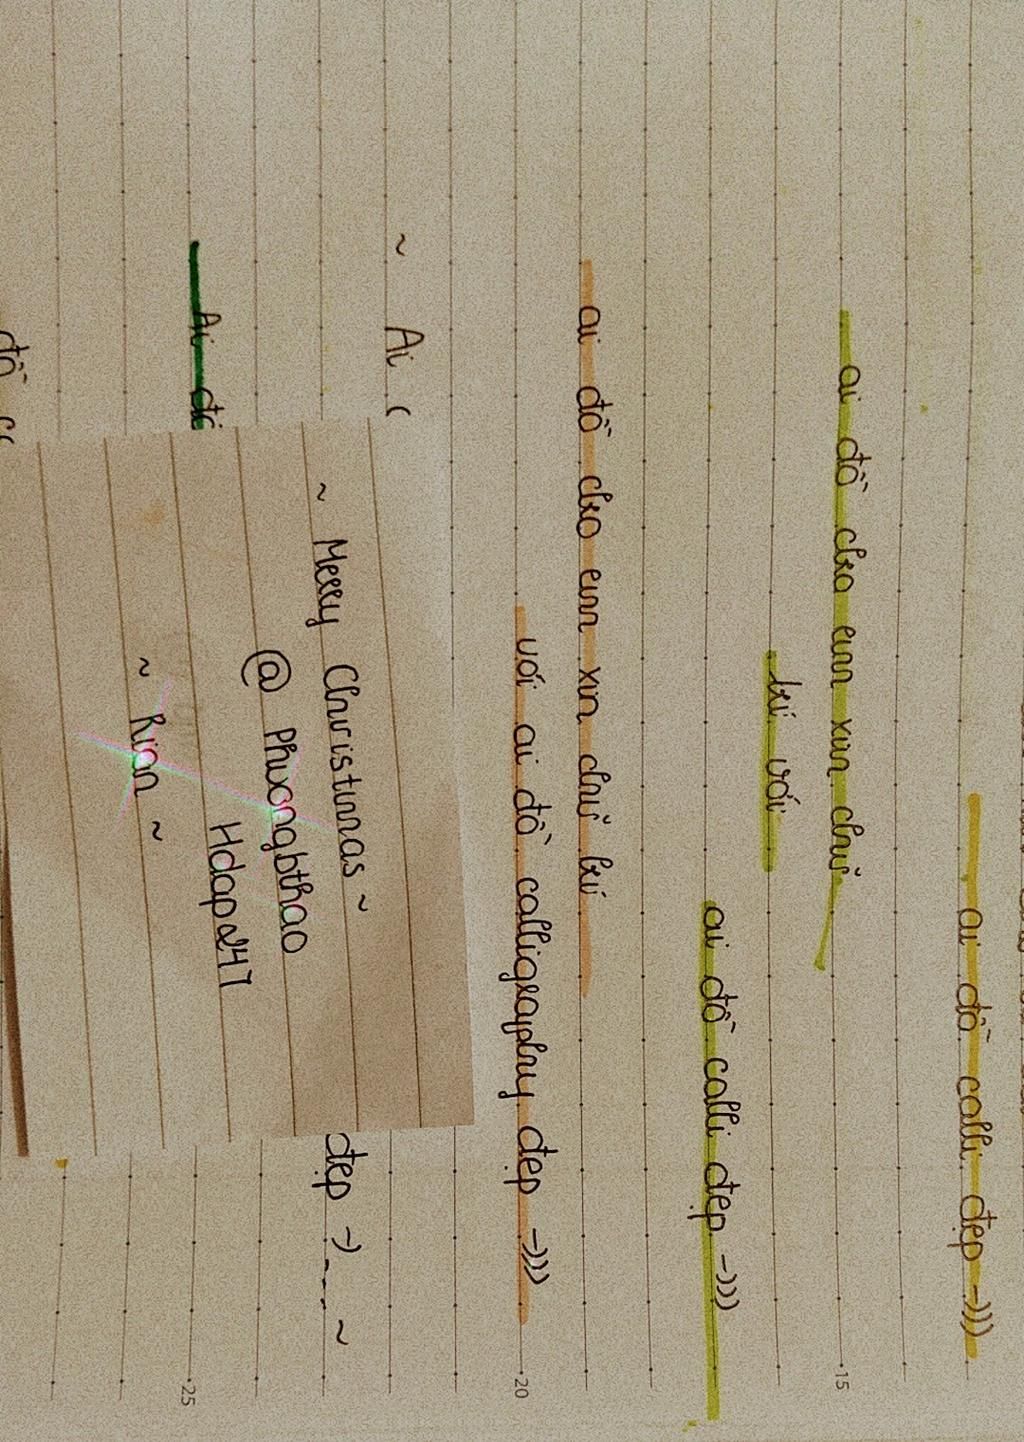 ai đồ calli đẹp -)))
ai đồ cho em xin chữ 15
kí với
ai đồ calli đẹp -)))
ai đồ cho em xin chữ kí
với ai đồ calligraphy đẹp -))) 20
~ Ai
đẹp -)---- ~
Ai 25
~ Merry Christmas ~
@ Phuongbthao
Hdap247
~ Rian ~